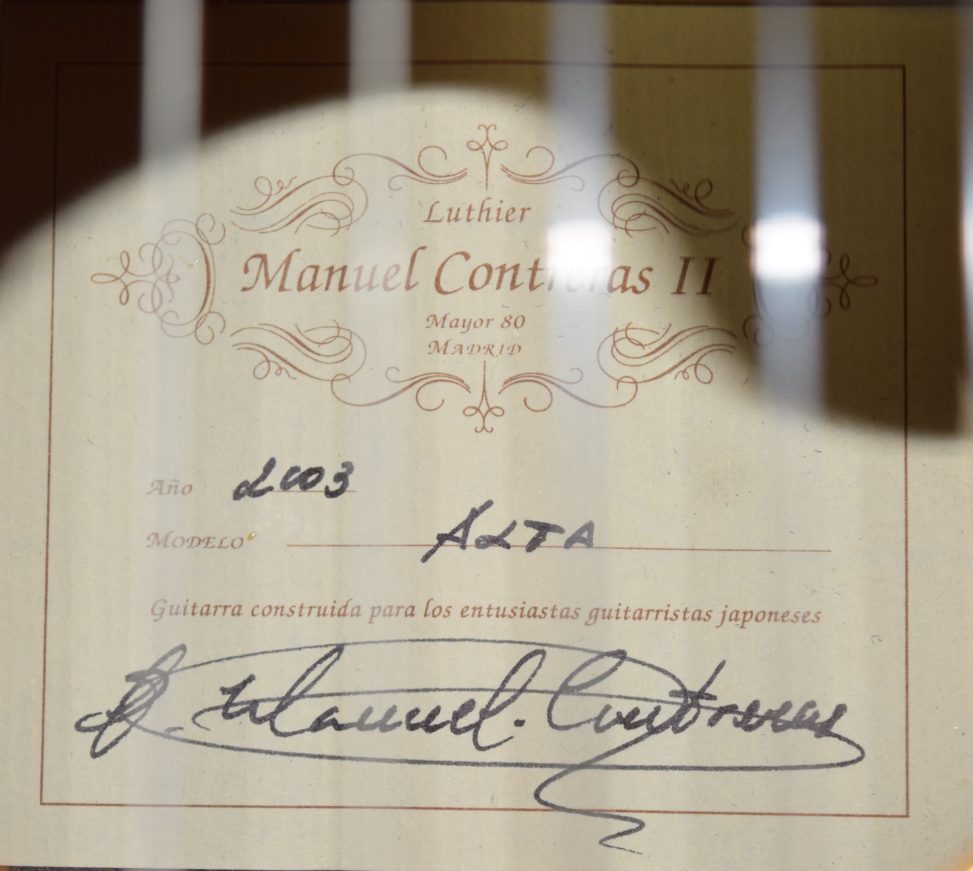 Luthier
Manuel Contreras II
Mayor 80
MADRID
Año 2003
MODELO ALTA
Guitarra construida para los entusiastas guitarristas japoneses
Manuel. Contreras